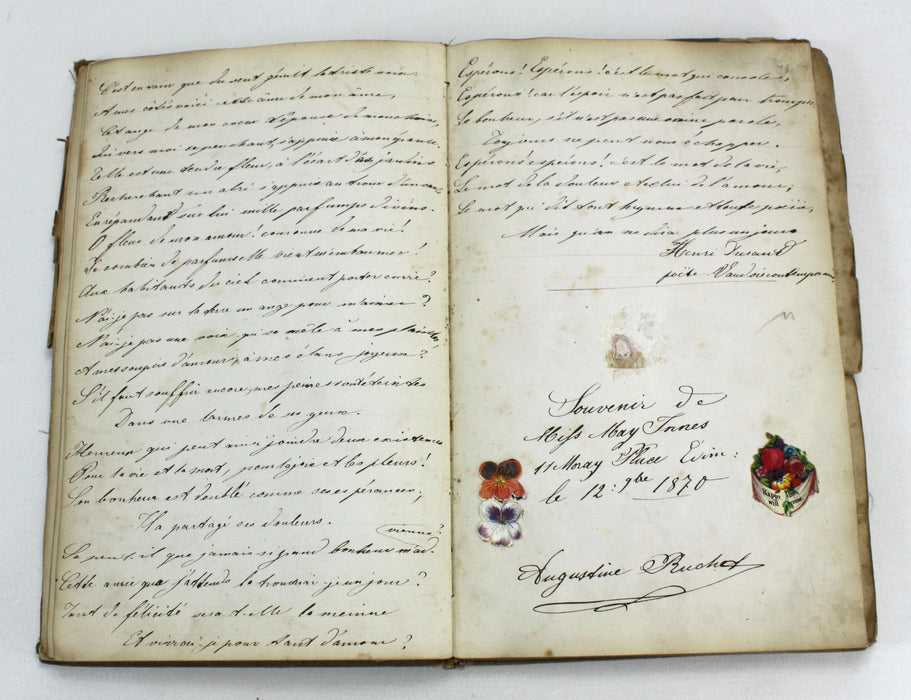 C'est en vain que du vent gémit la triste voix
A mes côtés voici cette âme de mon âme,
Cet ange de mon coeur
Qui vers moi se penchant, s'appuie à mon
Telle est une tendre fleur, à l'écart des jardins
Recherchant un abri s'appuie au tronc d'un
En répandant sur lui mille parfums divins.
O fleur de mon amour! couronne de ma vie!
De combien de parfums elle vient m'embaumer!
Aux habitants du ciel comment porter envie?
N'ai-je pas sur la terre un ange pour m'aimer?
N'ai-je pas une voix qui se mêle à mes plaintes,
A mes soupirs d'amour, à mes élans joyeux?
S'il faut souffrir encore, mes peines sont éteintes
Dans une larmes de ses yeux.
Heureux qui peut ainsi joindre deux existences
Pour la vie et la mort, pour la joie et les pleurs!
Son bonheur est doublé comme ses espérances,
Il a partagé ses douleurs.
vienne?
Se peut-il que jamais si grand bonheur m'ad.
Cette amie que j'attends la trouverai-je un jour?
Tant de félicité sera-t-elle la mienne
Et vivrai-je pour tant d'amour?
Espérons! Espérons! c'est le mot qui console,
Espérons! car l'espoir n'est pas fait pour tromper
Le bonheur, s'il n'est pas une vaine parole,
Toujours ne peut nous échapper.
Espérons espérons! c'est le mot de la vie,
Le mot de la douleur et celui de l'amour,
Le mot qui dit tout hymne et toute poésie,
Mais qu'on ne dira plus un jour
Henri Durand
poète Vaudois contemporain
Souvenir de
Miss May Innes
11 Moray Place Edim:
le 12: 9bre 1870
Augustine Ruchet
Happy
will